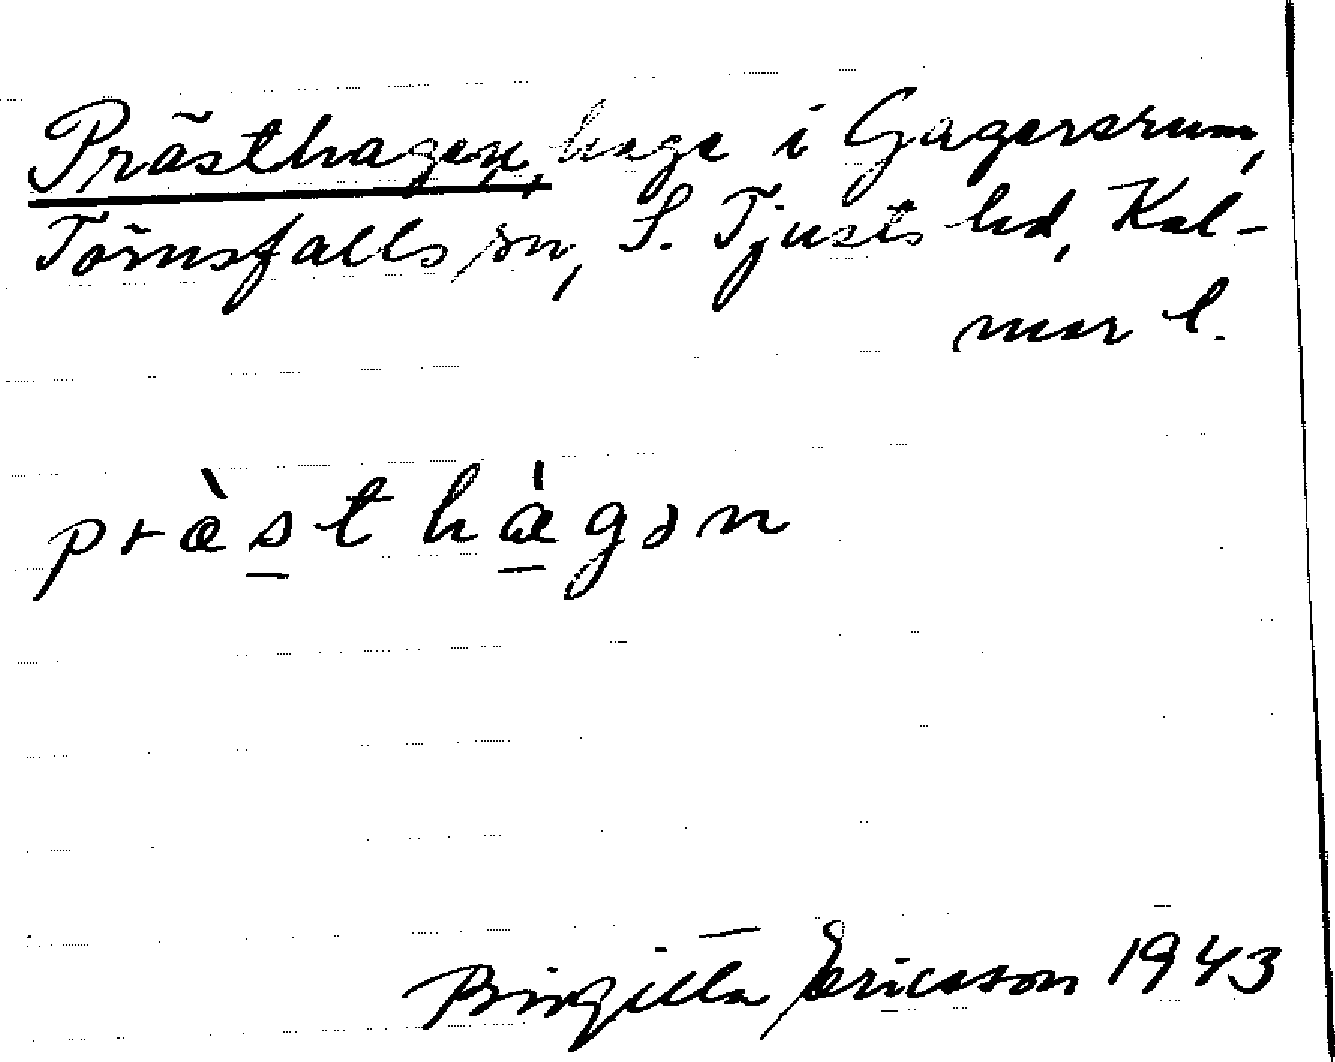 Prästhagen, hage i Gagersrum,
Törnsfalls sn, S. Tjusts hd, Kal-
mar l.
præ̀st hàgən
Birgitta Ericsson 1943